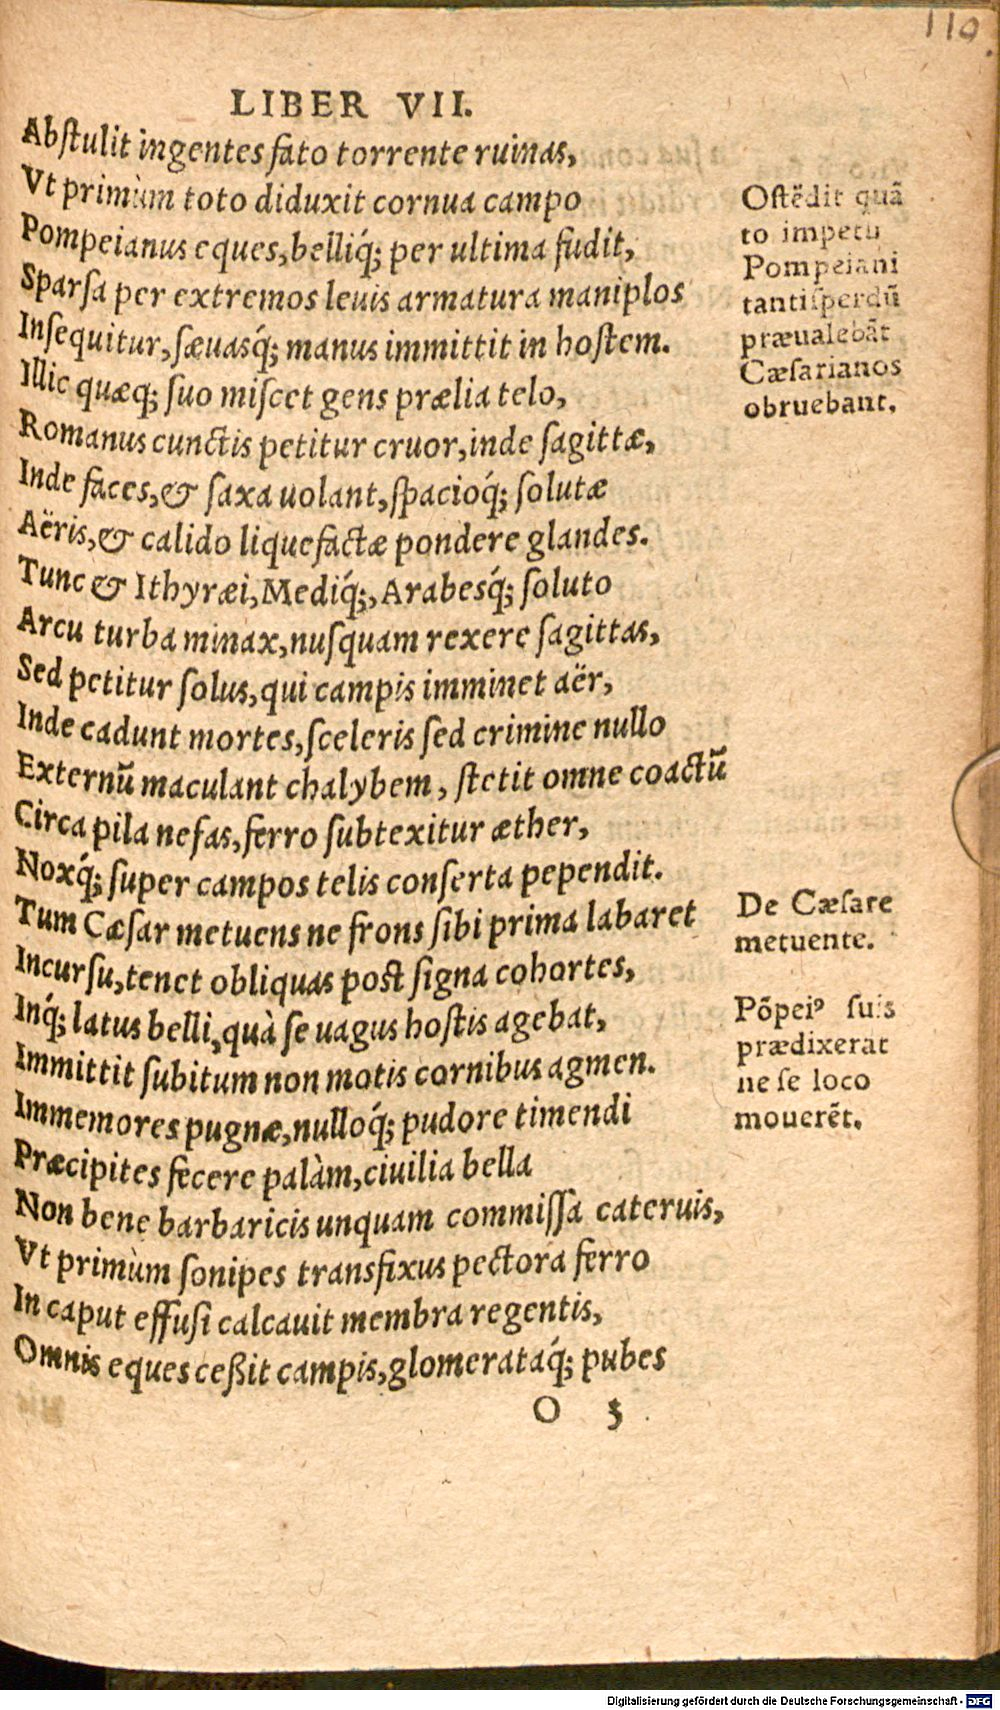 110
LIBER VII.
Abſtulit ingentes fato torrente ruinas,
Vt primùm toto diduxit cornua campo
Pompeianus eques, belliq́; per ultima fudit,
Sparſa per extremos leuis armatura maniplos
Inſequitur, ſæuasq́; manus immittit in hoſtem.
Illic quæq; ſuo miſcet gens prælia telo,
Romanus cunctis petitur cruor, inde ſagittæ,
Inde faces, & ſaxa uolant, ſpacioq́; ſolutæ
Aëris, & calido liquefactæ pondere glandes.
Tunc & Ithyræi, Mediq́;, Arabesq́; ſoluto
Arcu turba minax, nuſquam rexere ſagittas,
Sed petitur ſolus, qui campis imminet aër,
Inde cadunt mortes, ſceleris ſed crimine nullo
Externū maculant chalybem, ſtetit omne coactū
Circa pila nefas, ferro ſubtexitur æther,
Noxq́; ſuper campos telis conſerta pependit.
Tum Cæſar metuens ne frons ſibi prima labaret
Incurſu, tenet obliquas poſt ſigna cohortes,
Inq́; latus belli, quà ſe uagus hoſtis agebat,
Immittit ſubitum non motis cornibus agmen.
Immemores pugnæ, nulloq́; pudore timendi
Præcipites fecere palàm, ciuilia bella
Non bene barbaricis unquam commiſſa cateruis,
Vt primùm ſonipes transfixus pectora ferro
In caput effuſi calcauit membra regentis,
Omnis eques ceßit campis, glomerataq́; pubes
O 3
Oſtēdit quā
to impetu
Pompeiani
tantiſperdū
præualebāt
Cæſarianos
obruebant.
De Cæſare
metuente.
Pōpeiꝰ ſuis
prædixerat
ne ſe loco
mouerēt.
Digitalisierung gefördert durch die Deutsche Forschungsgemeinschaft - DFG